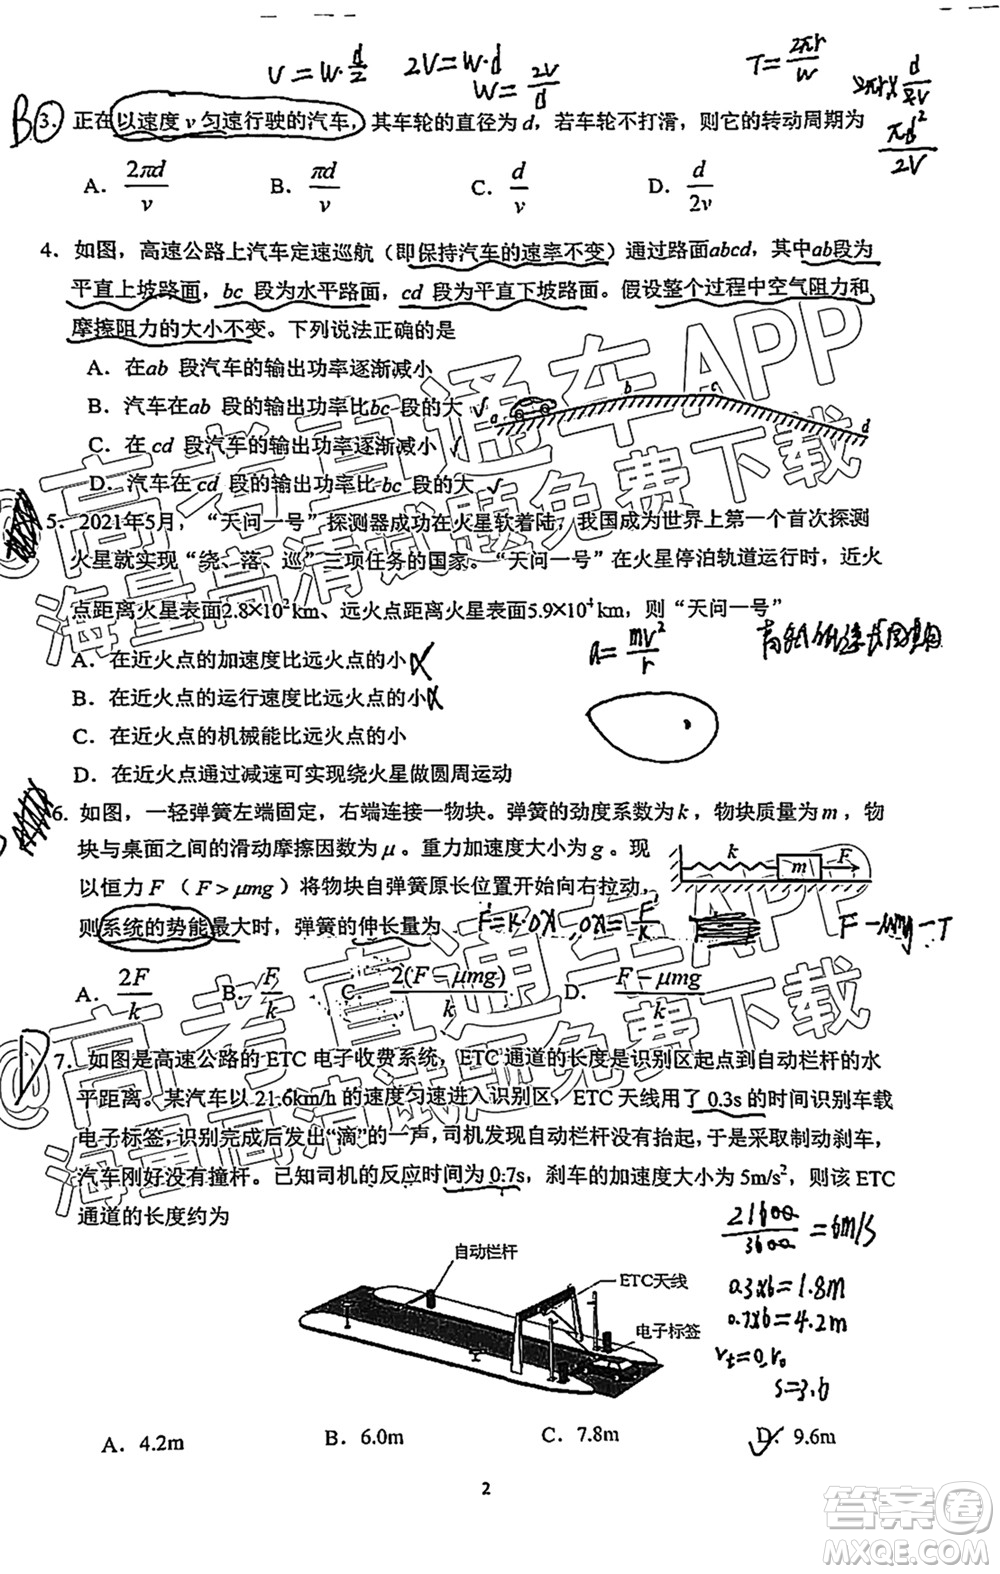 V=W·d/2 2V=W·d W=2V/d T=2πr/W
B 3. 正在以速度 v 匀速行驶的汽车，其车轮的直径为 d，若车轮不打滑，则它的转动周期为
πd²/2V
A. 2πd/v B. πd/v C. d/v D. d/2v
4. 如图，高速公路上汽车定速巡航（即保持汽车的速率不变）通过路面abcd，其中ab段为
平直上坡路面，bc 段为水平路面，cd 段为平直下坡路面。假设整个过程中空气阻力和
摩擦阻力的大小不变。下列说法正确的是
A．在ab 段汽车的输出功率逐渐减小
B．汽车在ab 段的输出功率比bc 段的大 √
a b c d
C．在 cd 段汽车的输出功率逐渐减小
D．汽车在 cd 段的输出功率比 bc 段的大
5．2021年5月，“天问一号”探测器成功在火星软着陆，我国成为世界上第一个首次探测
火星就实现“绕、落、巡”三项任务的国家。“天问一号”在火星停泊轨道运行时，近火
点距离火星表面2.8×10²km、远火点距离火星表面5.9×10⁴km，则“天问一号”
A．在近火点的加速度比远火点的小 a=mv²/r
B．在近火点的运行速度比远火点的小
C．在近火点的机械能比远火点的小
D．在近火点通过减速可实现绕火星做圆周运动
6. 如图，一轻弹簧左端固定，右端连接一物块。弹簧的劲度系数为 k，物块质量为 m，物
块与桌面之间的滑动摩擦因数为 μ。重力加速度大小为 g。现
k m F
以恒力 F（F＞μmg）将物块自弹簧原长位置开始向右拉动，
则系统的势能最大时，弹簧的伸长量为 F=k·△x △x=F/k F-μmg-T
A. 2F/k B. F/k C. 2(F-μmg)/k D. F-μmg/k
7. 如图是高速公路的 ETC 电子收费系统，ETC 通道的长度是识别区起点到自动栏杆的水
平距离。某汽车以 21.6km/h 的速度匀速进入识别区，ETC 天线用了 0.3s 的时间识别车载
电子标签，识别完成后发出“滴”的一声，司机发现自动栏杆没有抬起，于是采取制动刹车，
汽车刚好没有撞杆。已知司机的反应时间为 0.7s，刹车的加速度大小为 5m/s²，则该 ETC
通道的长度约为
21600/3600=6m/s
自动栏杆
ETC天线
电子标签
0.3×6=1.8m
0.7×6=4.2m
s=3.6
A．4.2m B．6.0m C．7.8m D．9.6m
2
@高考直通车APP
海量高清试题免费下载
@高考直通车APP
海量高清试题免费下载
答案圈
MXQE.COM